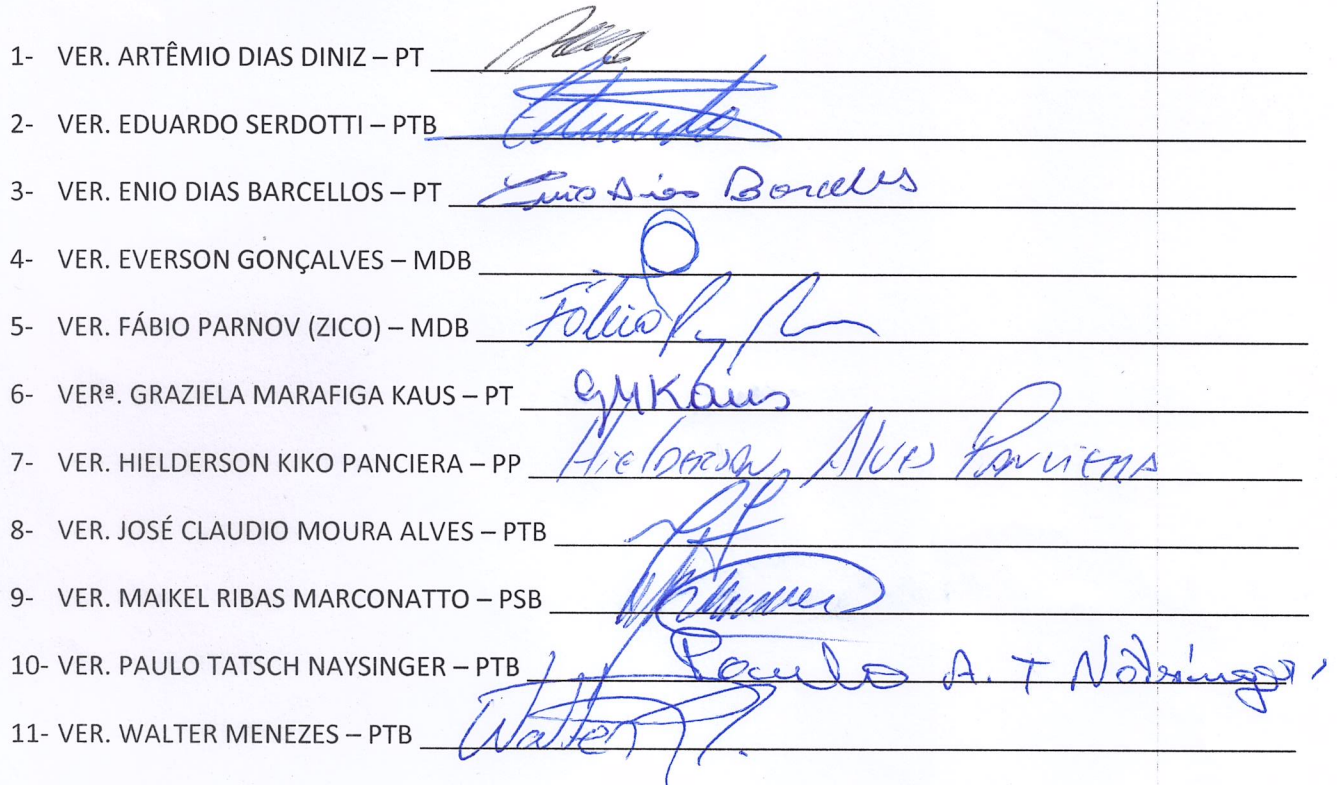 1- VER. ARTÊMIO DIAS DINIZ – PT
2- VER. EDUARDO SERDOTTI – PTB Eduardo
3- VER. ENIO DIAS BARCELLOS – PT Enio Dias Barcellos
4- VER. EVERSON GONÇALVES – MDB
5- VER. FÁBIO PARNOV (ZICO) – MDB Fábio
6- VERª. GRAZIELA MARAFIGA KAUS – PT GMKaus
7- VER. HIELDERSON KIKO PANCIERA – PP Hielderson Alves Panciera
8- VER. JOSÉ CLAUDIO MOURA ALVES – PTB
9- VER. MAIKEL RIBAS MARCONATTO – PSB
10- VER. PAULO TATSCH NAYSINGER – PTB Paulo A. T
11- VER. WALTER MENEZES – PTB Walter